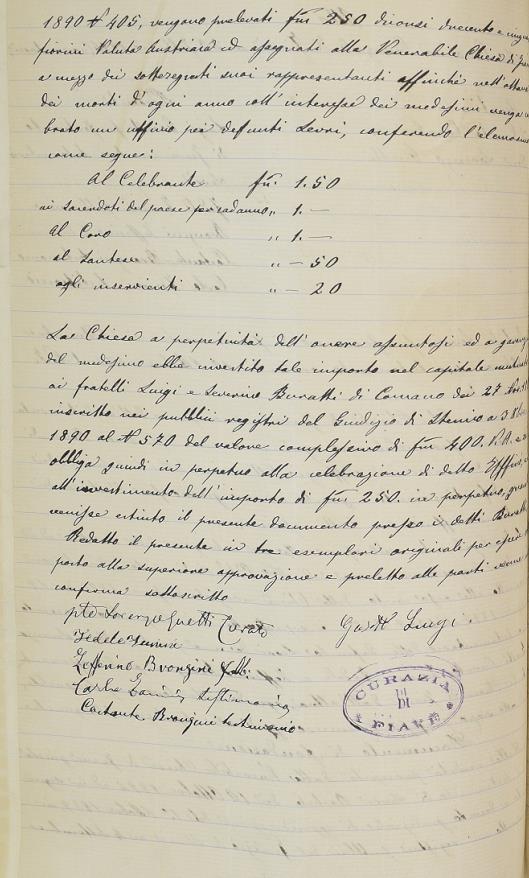 1890 № 405, vengono prelevati fni 250 diconsi duecento e cinqua
fiorini Valuta Austriaca ed assegnati alla Venerabile Chiesa di
a mezzo dei sottosegnati suoi rappresentanti affinchè nell'ottava
dei morti d'ogni anno coll'interesse dei medesimi venga
brato un uffizio pei deffunti Levri, conferendo l'elemosina
come segue:
Al Celebrante fni. 1.50
ai sacerdoti del paese per cadauno „ 1. —
Al Coro „ 1. —
al Santese „ — 50
agli inservienti „ — 20
La Chiesa a perpetuità dell'onere assuntosi ed a garan
del medesimo ebbe investito tale importo nel capitale
ai fratelli Luigi e Severino Buratti di Comano dei 27
inscritto nei pubblici registri del Giudizio di Stenico a 3
1890 al № 570 del valore complessivo di fni 400. V.A. e
obbliga quindi in perpetuo alla celebrazione di detto Uffizio,
all'investimento dell'importo di fni 250. in perpetuo,
venisse estinto il presente documento presso i detti Buratti
Redatto il presente in tre esemplari originali per
posto alla superiore approvazione e preletto alle parti viene
conferma sottoscritto
pte Lorenzo Guetti Curato
Luigi
Fedele
Zefferino Bronzini
Carlo testimonio
Bronzini testimonio
CURAZIA
DI
FIAVÈ